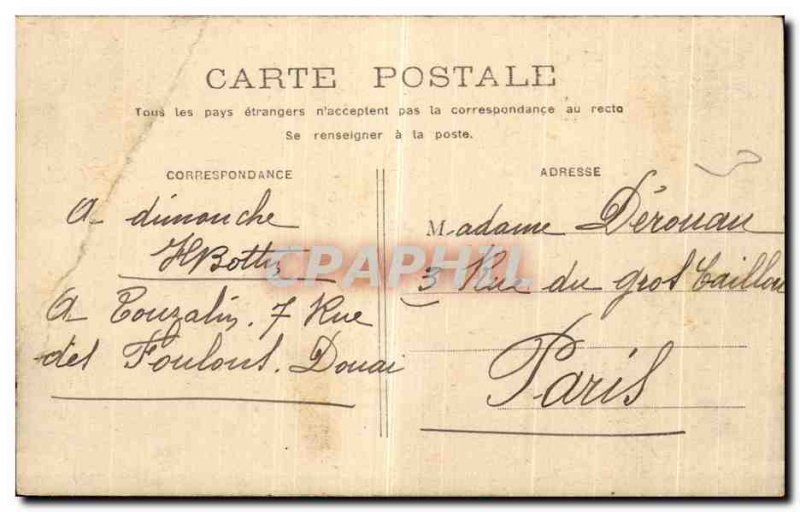 CARTE POSTALE
Tous les pays étrangers n'acceptent pas la correspondance au recto
Se renseigner à la poste.
CORRESPONDANCE
A dimanche
A Touzalin. 7 Rue
des Foulons. Douai
ADRESSE
Madame Dérouau
3 Rue du gros Caillou
Paris
CPAPHIL